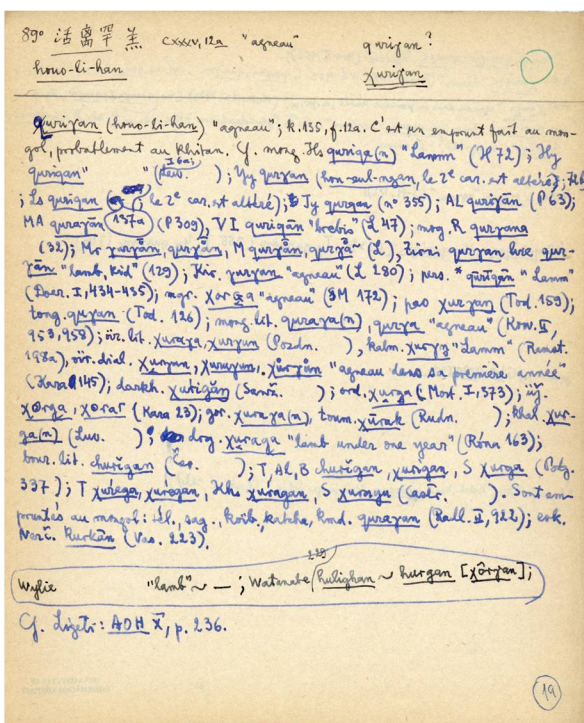 89° 活離罕羔 CXXXV, 12a "agneau" quriɣan?
houo-li-han χuriɣan
Quriɣan (houo-li-han) "agneau"; k. 135, f. 12a. C'est un emprunt fait au mon-
gol, probablement au khitan. Cf. mong. Hs quriga(n) "Lamm" (H 72); Hy
quriɣan" " ( I 6a; ); Yy qurɣan (hou-eul-ngan, le 2e car. est altéré);
; Ls qurigan ( le 2e car. est altéré); Jy qurɣan (n° 355); AL quriɣān (P 63);
MA quraɣān 137a (P 309), VI quriɣān "brebis" (L 47); mog. R qurɣana
(32); Mr ɣurɣån, qurɣån, M qurɣån, (L), Zirni qurɣan
"lamb, kid" (129); Kir. ɣurɣan "agneau" (L 280); pers. * quriɣān "Lamm"
(Doer. I, 434-435); mgr. χorɢa "agneau" (SM 172); pao χurɣaŋ (Tod. 159);
tong. quɣan (Tod. 126); mong. lit. quraɣa(n), qurɣa "agneau" (Kow. II,
953, 958); öir. lit. χuraɣa, χurɣan (Pozdn. ), kalm. χurɣɣ "Lamm" (Ramst.
198a), öir. dial. χurɣun, χuraɣan, χurɣån "agneau dans sa première année"
(Kara 145); darkh. χurigăŋ (Sanž. ); ord. χurga (Most. I, 373); üj.
χorga, χorar (Kara 23); gor. χuraɣa(n), toum. χūrak (Rudn. ); khal. χur-
ga(n) (Luv. ); dag. χuraga "lamb under one year" (Róna 163);
bour. lit. chuŕigan (Čer. ); T, Al, B churigan, χurigan, S χurga (Potg.
337); T χurega, χuregan, Kh χuragan, S χuragu (Castr. ). Sont em-
pruntés au mongol: tél., sag., koib., katcha, kmd. quraɣan (Radl. II, 922); evk.
Nerč. kurkān (Vas. 223).
229
Wylie "lamb" ~ — ; Watanabe hulighan ~ hurgan [χôrɣan];
Cf. Ligeti: AOH X, p. 236.
19